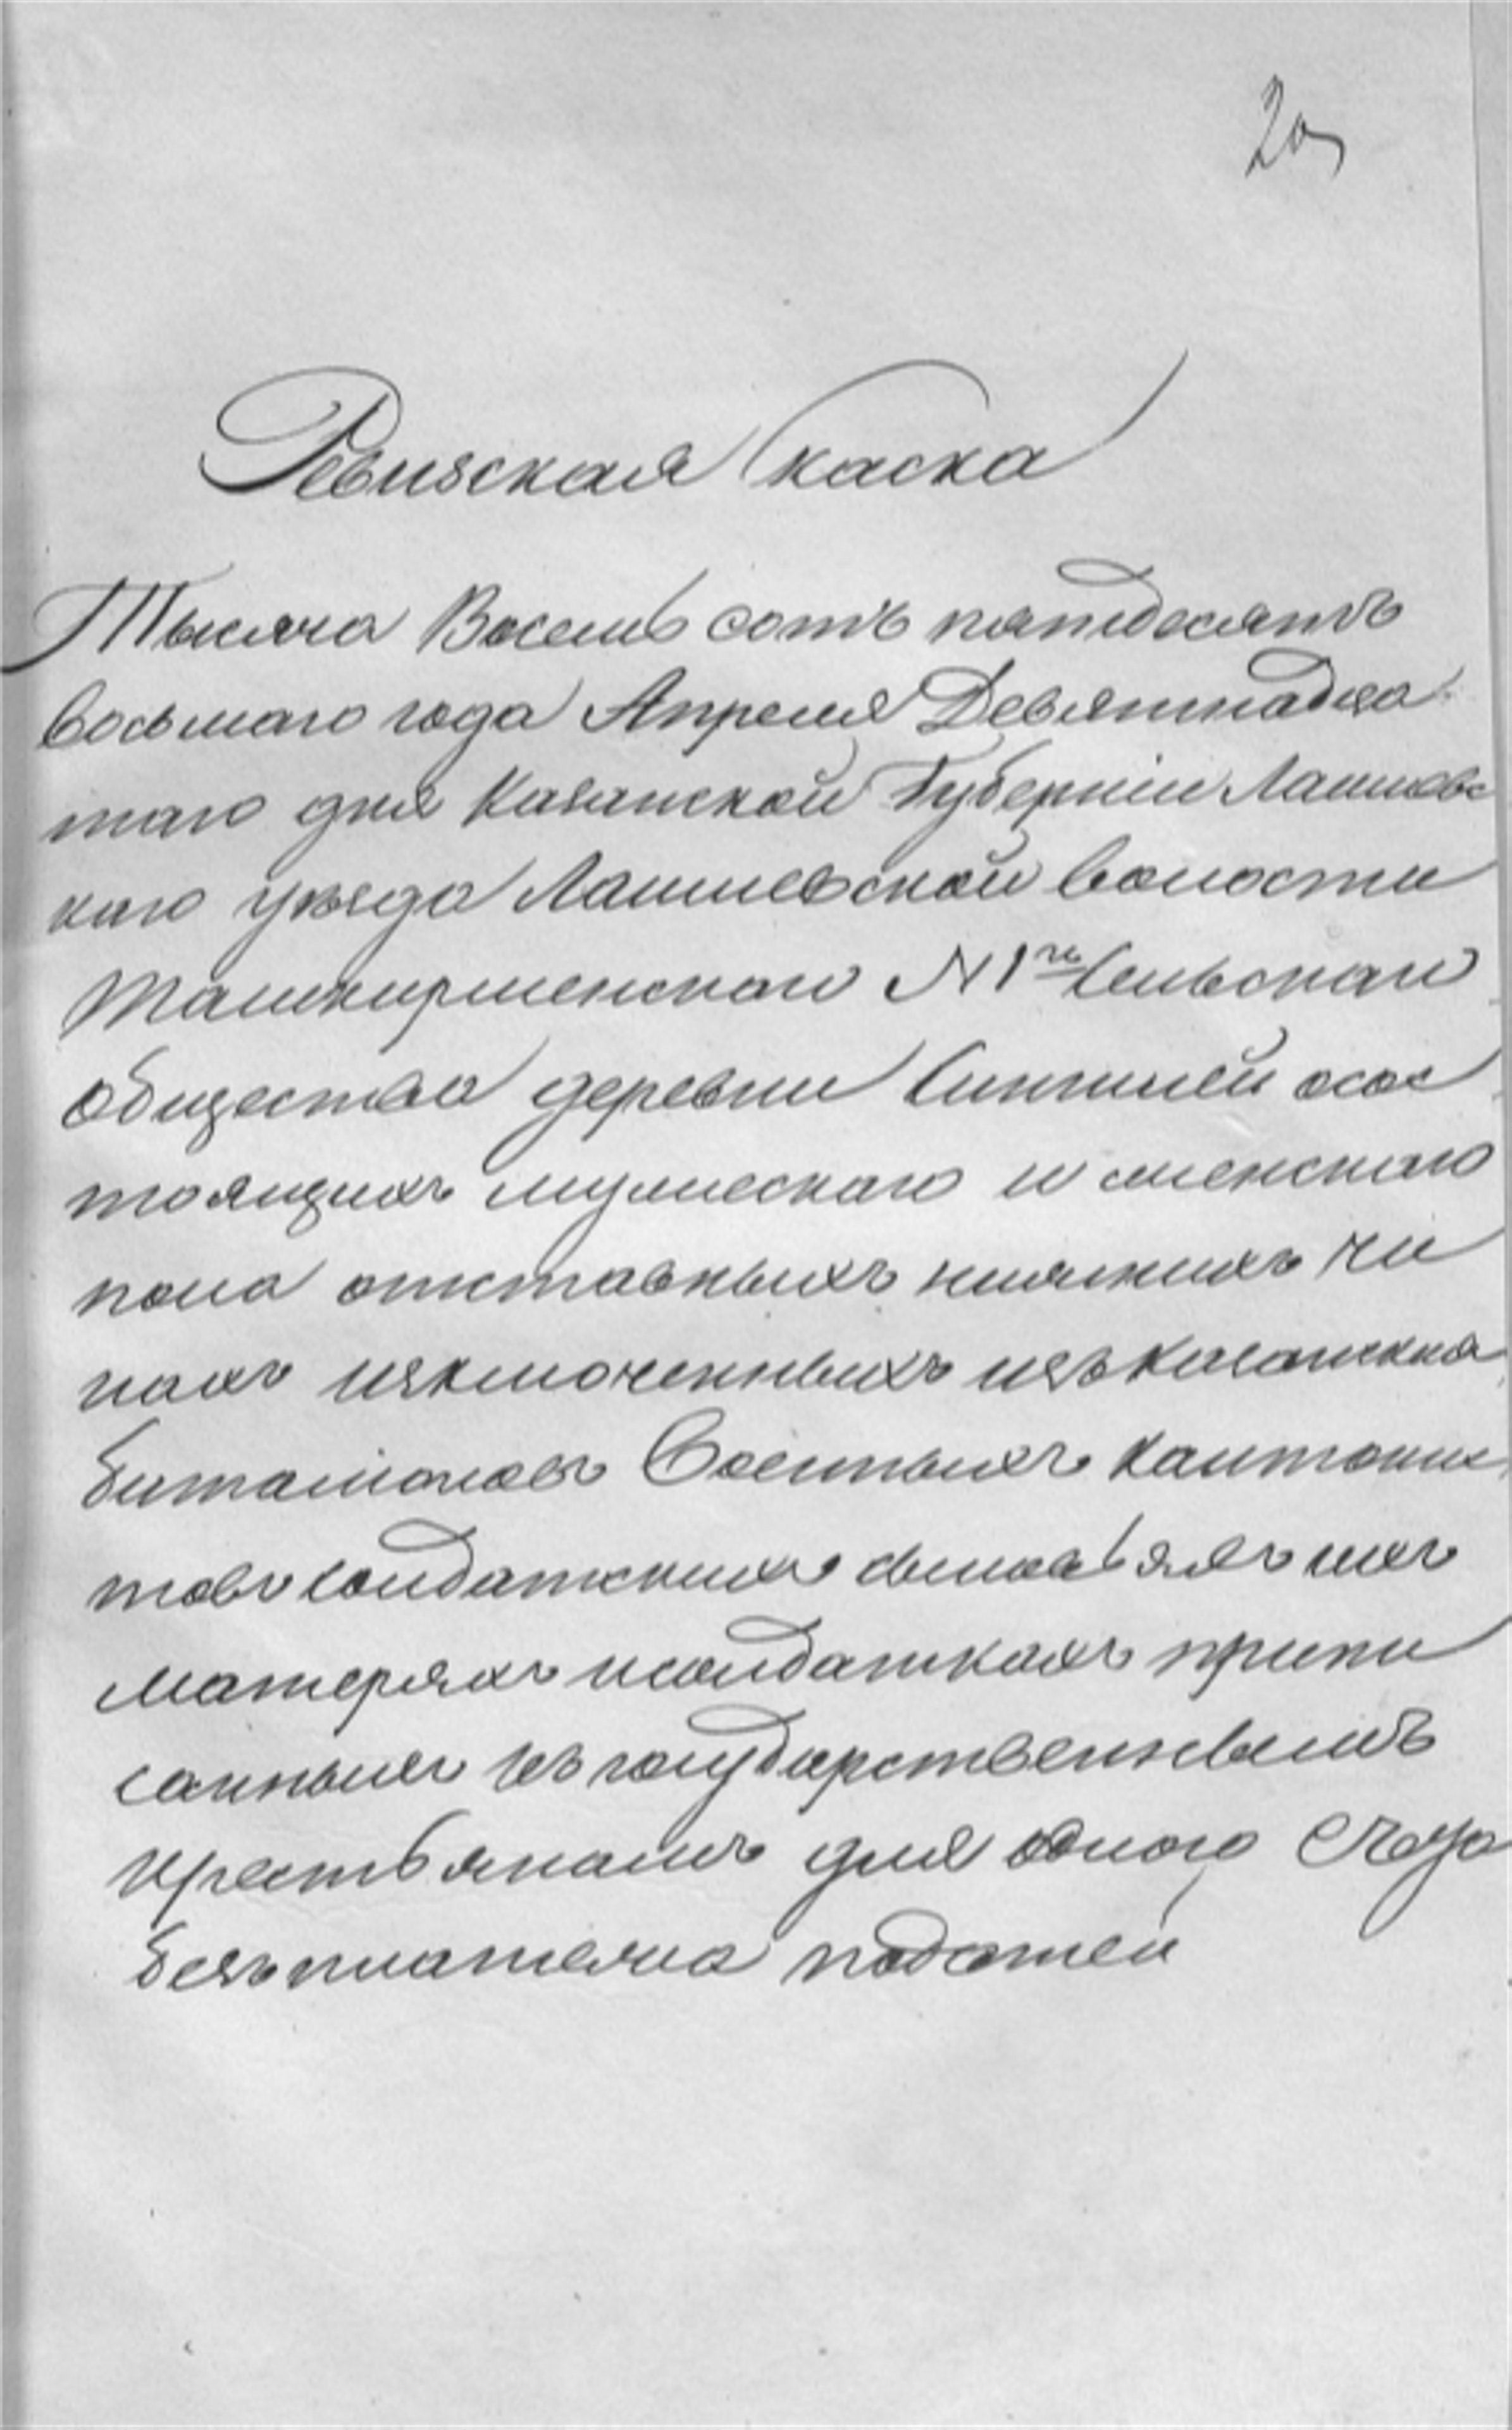 20
Ревизская сказка
Тысяча Восемь сотъ пятьдесятъ
восьмаго года Апреля Девятнадца
таго дня Казанской Губерніи Лаишевс
каго уѣзда Лаишевской волости
Ташкирменскаго N 1го Сельскаго
общества деревни Синтшей осос
тоящихъ мужескаго и женскаго
пола отставныхъ нижнихъ чи
нахъ изключенныхъ изъ казанскихъ
баталіоновъ Военныхъ кантонис
товъ солдатскихъ сыновьяхъ ихъ
матеряхъ и солдаткахъ припи
санныхъ къ государственнымъ
крестьянамъ для одного счета
безъ платежа податей